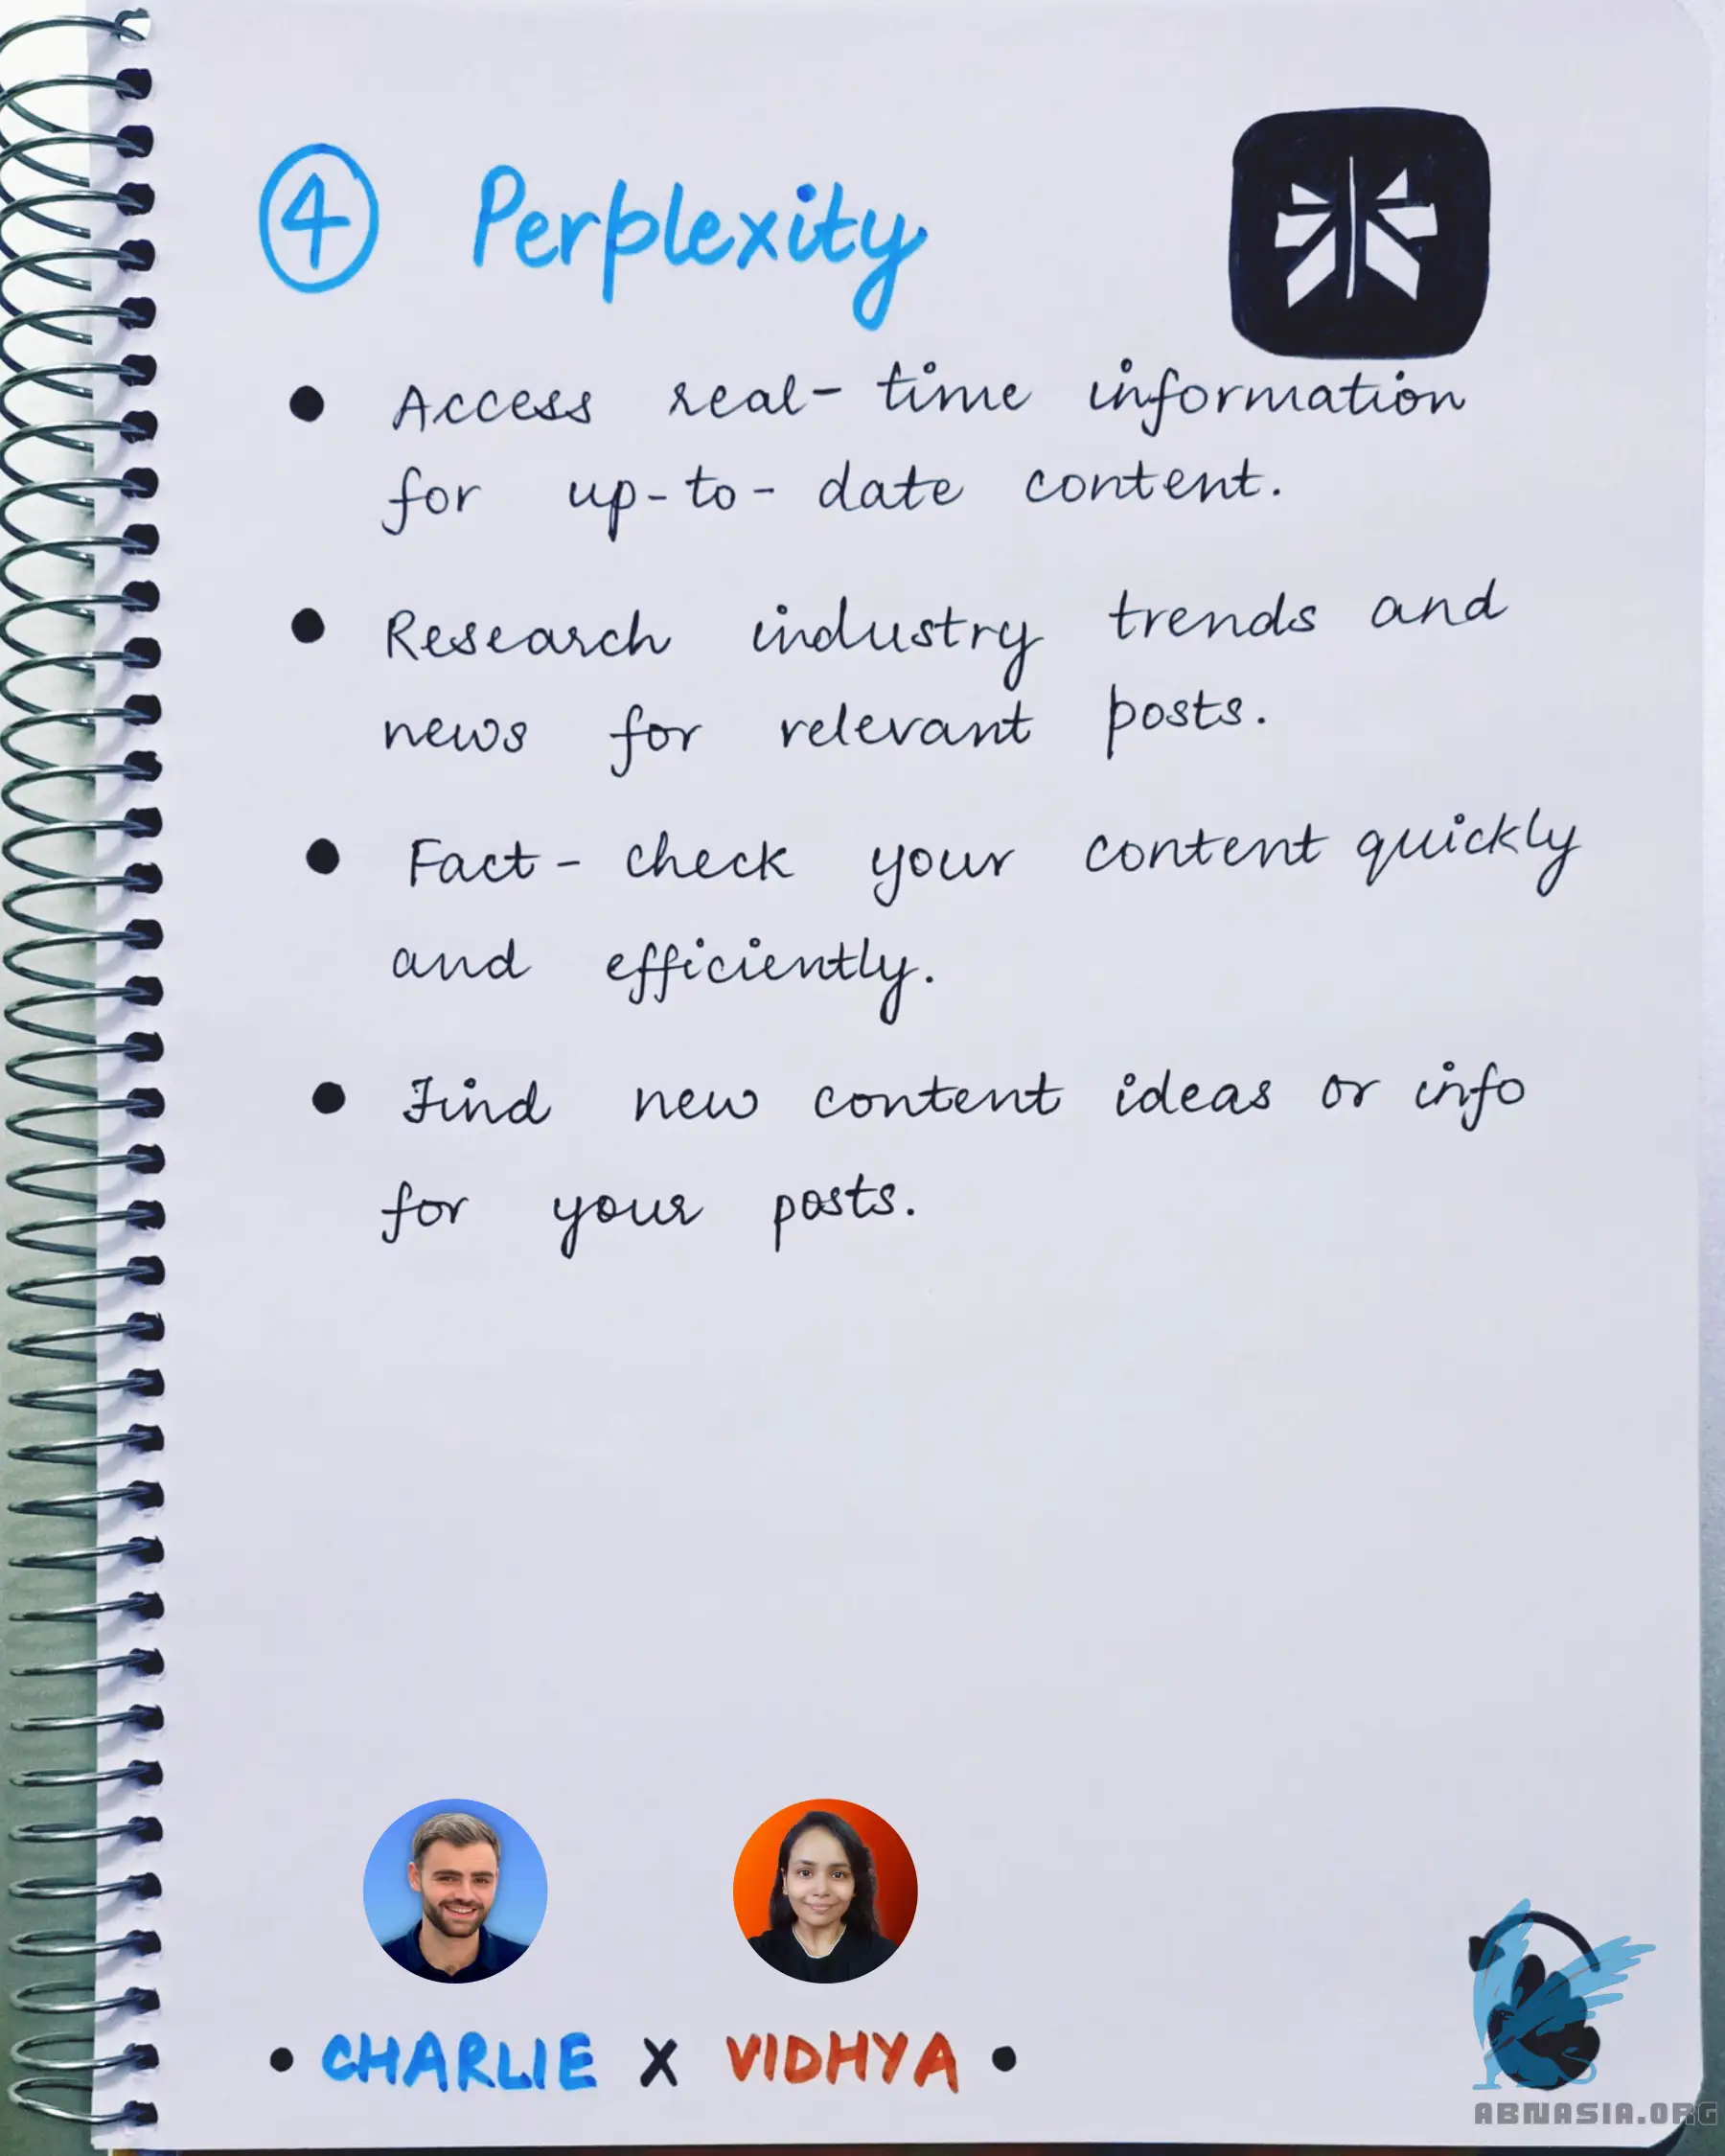 4 Perplexity
• Access real-time information
for up-to-date content.
• Research industry trends and
news for relevant posts.
• Fact-check your content quickly
and efficiently.
• Find new content ideas or info
for your posts.
• CHARLIE X VIDHYA •
ABNASIA.ORG